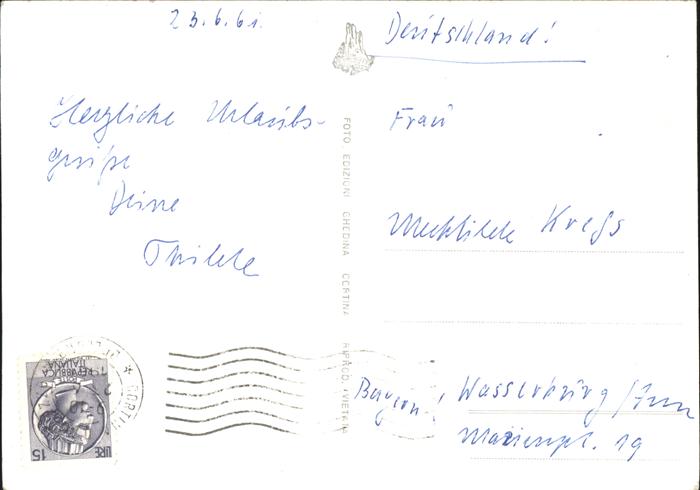 23.6.61.
Herzliche Urlaubs-
grüße
Deine
Thilde
FOTO EDIZIONI GHEDINA CORTINA RIPROD. VIETATA
Deutschland!
Frau
Mechtilde Krefs
Bayern! Wasserburg/Inn
Marienpl. 19
REPUBBLICA
ITALIANA
LIRE 15
CORTINA